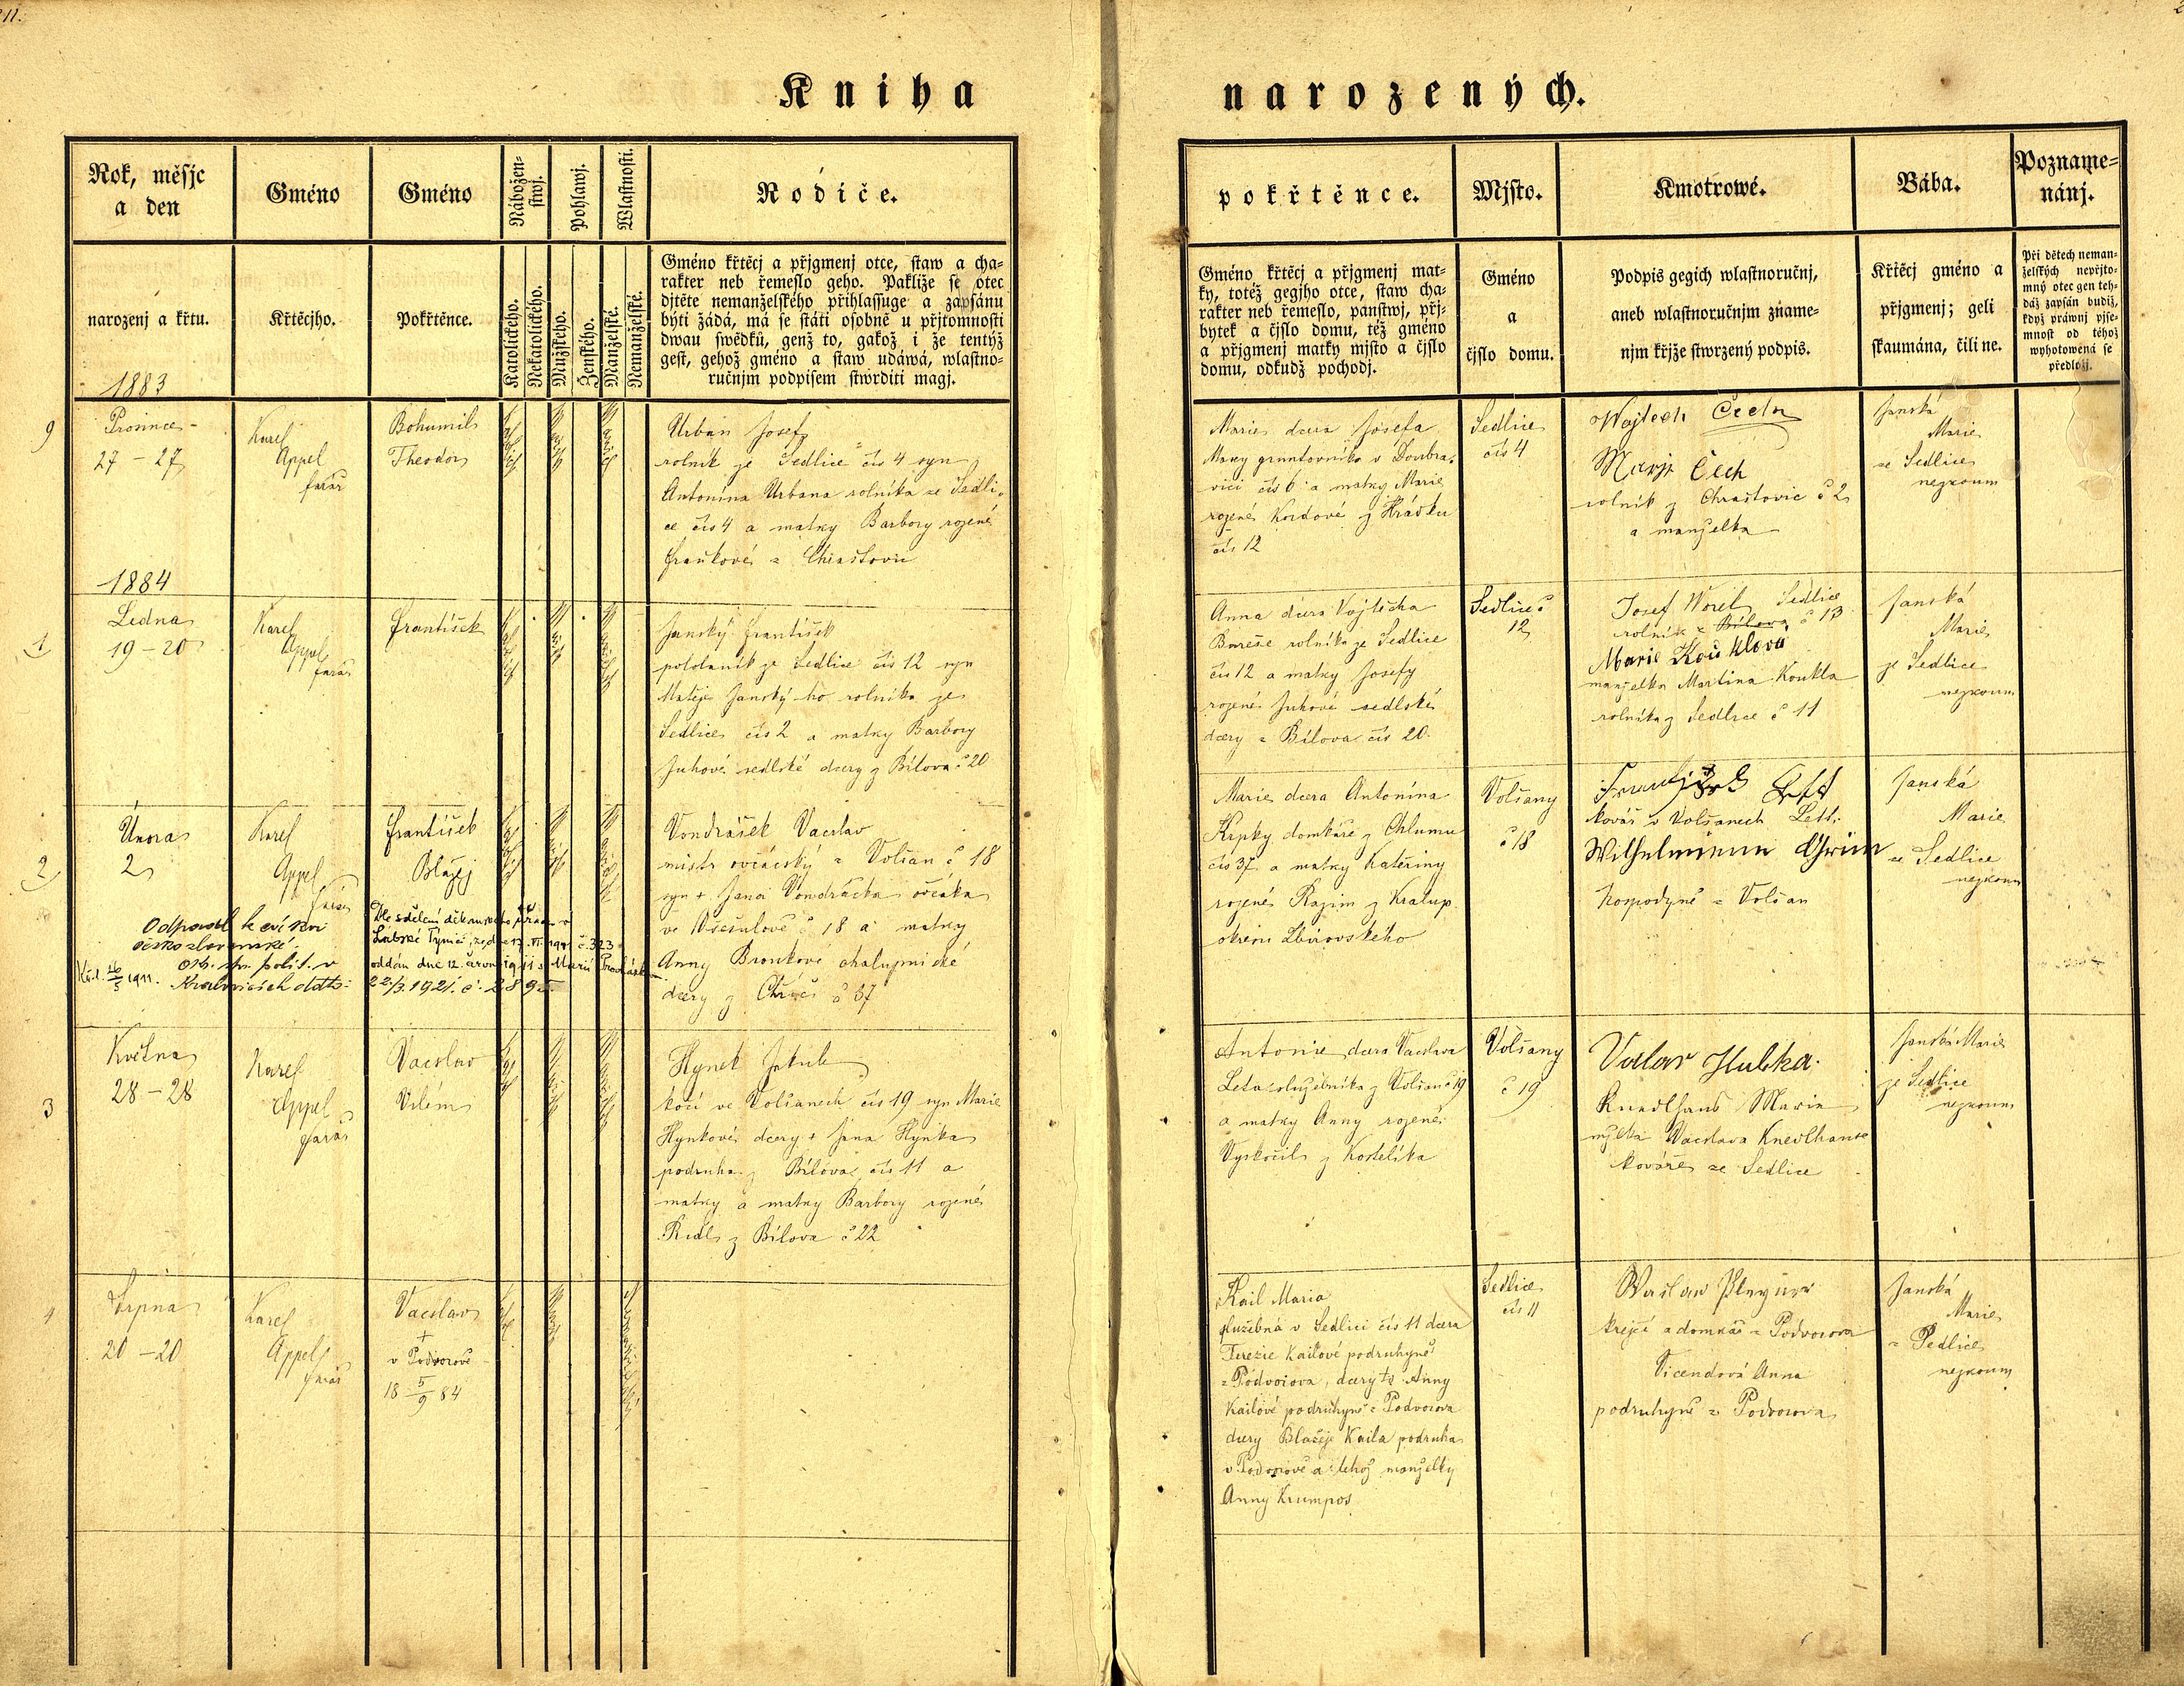 11.
Kniha narozených.
Rok, měsjc
a den
Gméno
Gméno
Nábožen-
stwj.
Pohlawj.
Wlastnosti.
Rodiče.
narozenj a křtu.
Křtěcjho.
Pokřtěnce.
Katolického.
Nekatolického.
Mužského.
Ženského.
Manželské.
Nemanželské.
Gméno křtěcj a přjgmenj otce, staw a cha-
rakter neb řemeslo geho. Pakliže se otec
djtěte nemanželského přihlassuge a zapsánu
býti žádá, má se státi osobně u přjtomnosti
dwau swědků, genž to, gakož i že tentýž
gest, gehož gméno a staw udáwá, wlastno-
ručnjm podpisem stwrditi magj.
pokřtěnce.
Mjsto.
Kmotrowé.
Bába.
Pozname-
nánj.
Gméno křtěcj a přjgmenj mat-
ky, totéž gegjho otce, staw cha-
rakter neb řemeslo, panstwj, přj-
bytek a čjslo domu, též gméno
a přjgmenj matky mjsto a čjslo
domu, odkudž pochodj.
Gméno
a
čjslo domu.
Podpis gegich wlastnoručnj,
aneb wlastnoručnjm zname-
njm křjže stwrzený podpis.
Křtěcj gméno a
přjgmenj; geli
skaumána, čili ne.
Při dětech neman-
želských nepřjto-
mný otec gen teh-
dáž zapsán budiž,
když práwnj pjse-
mnost od téhož
wyhotowená se
předložj.
1883
9
Prosince
27 - 27
Karel
Appel
farář
Bohumil
Theodor
Urban Josef
rolník ze Sedlice čís 4 syn
Antonína Urbana rolníka ze Sedli-
ce čís 4 a matky Barbory rozené
Fraňkové z Chrašťovic
Marie dcera Josefa
Maxy gruntovníka v Doubra-
vici čís 6 a matky Marie
rozené Kordové z Hrádku
čís 12
Sedlice
čís 4
Wojtech Čech
Marje Čech
rolník z Chrašťovic č 2
a manželka
Janská
Marie
ze Sedlice
nezkoum
1884
1
Ledna
19 - 20
Karel
Appel
farář
František
Janský František
pololaník ze Sedlice čís 12 syn
Matěje Janský-ho rolníka ze
Sedlice čís 2 a matky Barbory
Juhové sedlské dcery z Bílova č 20
Anna dcera Vojtěcha
Bareše rolníka ze Sedlice
čís 12 a matky Josefy
rozené Juhové sedlské
dcery z Bílova čís 20.
Sedlice č
12
Josef Worel Sedlice
rolník z Bílova č 13
Marie Kouklova
manželka Martina Koukla
rolníka z Sedlice č 11
Janská
Marie
ze Sedlice
nezkoum
2
Února
2
Karel
Appel
farář
František
Blažej
Vondrášek Vacslav
mistr ovčácský z Volšan č 18
syn + Jana Vondráčka ovčáka
ve Všesulově č 18 a matky
Anny Bronkové chalupnické
dcery z Chříč č 37
Marie dcera Antonína
Krpky domkáře z Chlumu
čís 37 a matky Kateřiny
rozené Razim z Kralup
okresu Zbirovského
Volšany
č 18
kovář v Volšanech Lett.
Wilhelmienn Grim
hospodyně z Volšan
Janská
Marie
ze Sedlice
nezkoum
Odpadl k církvi
československé.
ozn. sp. polit. v
Kralovicích ddto:
22./3. 1921. č. 289
Dle sdělení děkanského úřadu v
oddán dne 12. června 1911 s Marií
3
Května
28 - 28
Karel
Appel
farář
Vacslav
Vilém
Hynek Jakub
kočí ve Volšanech čís 19 syn Marie
Hynkové dcery + Jana Hynka
podruha z Bílova čís 11 a
matky a matky Barbory rozené
Ridl z Bílova č 22
Antonie dcera Vacslava
Leta služebníka z Volšan č 19
a matky Anny rozené
Vyskočil z Kostelíka
Volšany
č 19
Václav Hubka.
Knedlhans Marie
mželka Vacslava Knedlhanse
kováře ze Sedlice
Janská Marie
ze Sedlice
nezkoum
4
Srpna
20 - 20
Karel
Appel
farář
Vacslav
+
v Podvorově
18 5/9 84
Kail Maria
služebná v Sedlici čís 11 dcera
Terezie Kailové podruhyně
z Podvorova, dcery Anny
Kailové podruhyně z Podvorova
dcery Blažeje Kaila podruha
v Podvorově a tehož manželky
Anny Krumpos
Sedlice
čís 11
krejčí a domkář z Podvorova
Vicendová Anna
podruhyně z Podvorova
Janská
Marie
z Sedlice
nezkoum